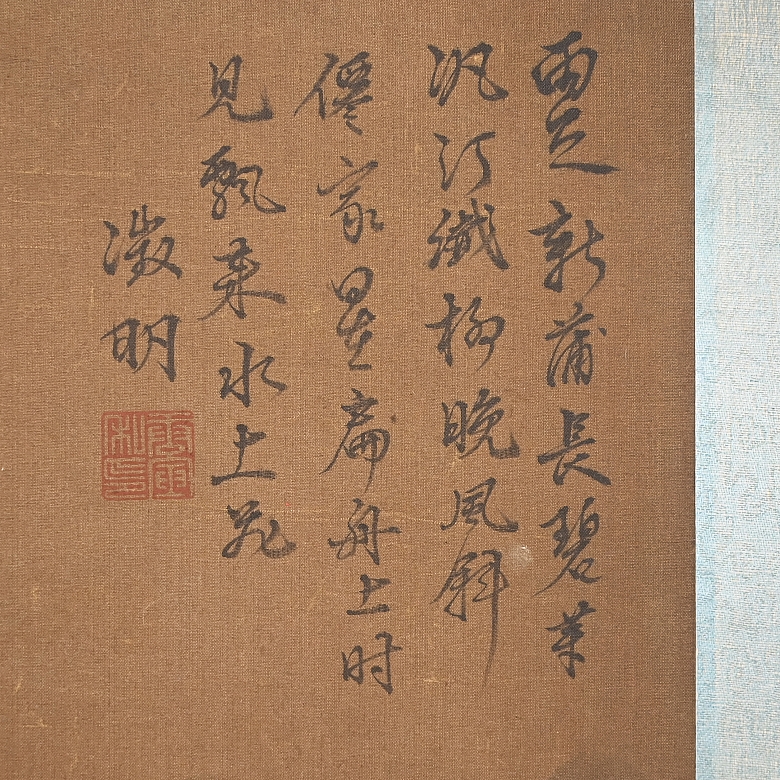 雨足新蒲長碧芽
汎汀纖柳晚風斜
僊家扁舟上时
見飄來水上花
徵明